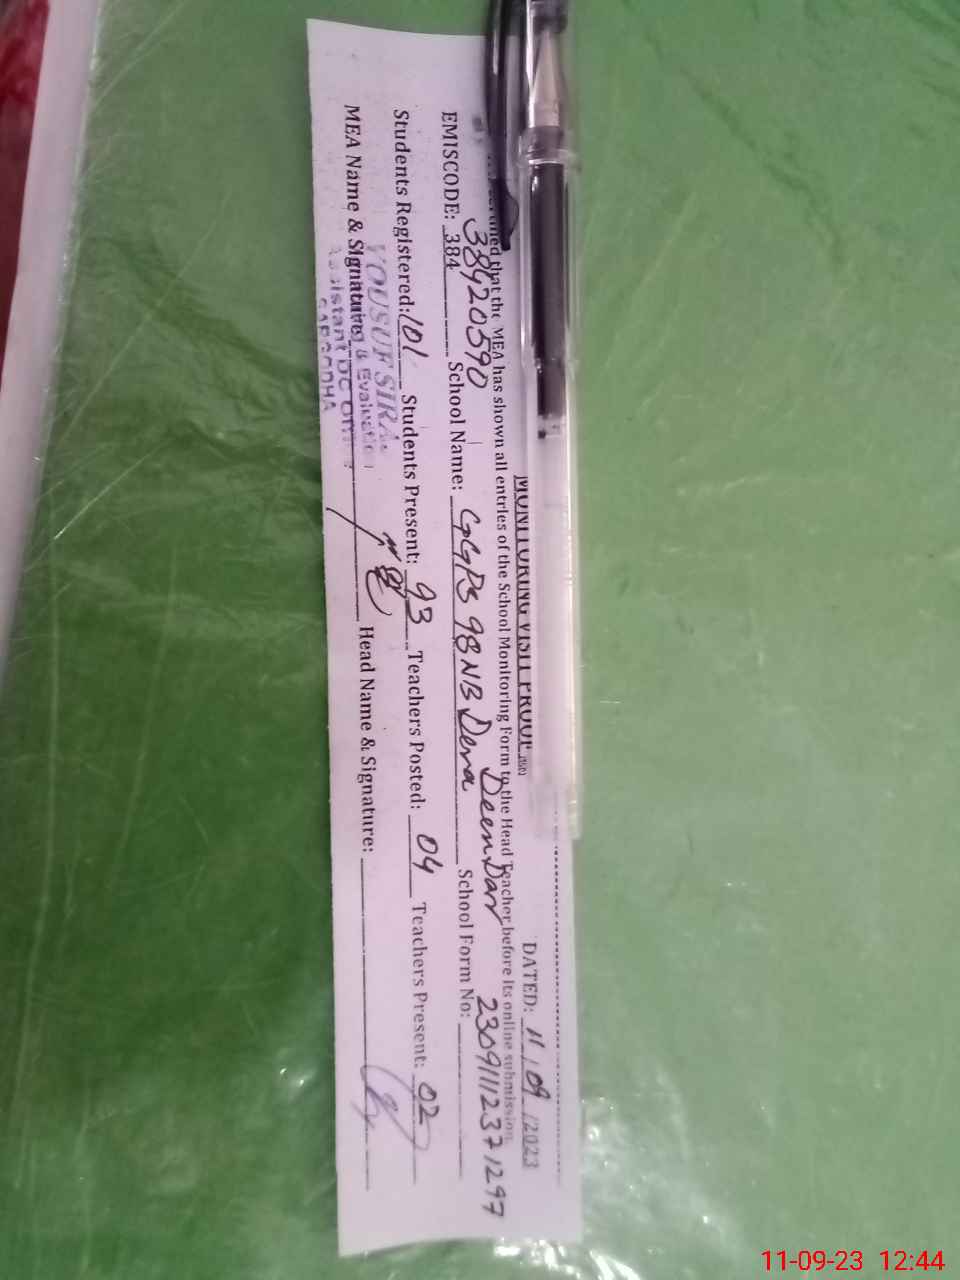 MONITORING VISIT PROOF
DATED: 11/09/2023
that the MEA has shown all entries of the School Monitoring Form to the Head Teacher before its online submission.
EMISCODE: 384 38420590 School Name: GGPS 98 NB Dera Deen Dar School Form No: 2309111237 1297
Students Registered: 101 Students Present: 93 Teachers Posted: 04 Teachers Present: 02
MEA Name & Signature: Head Name & Signature:
YOUSUF
& Evaluation
Assistant
SARGODHA
11-09-23 12:44